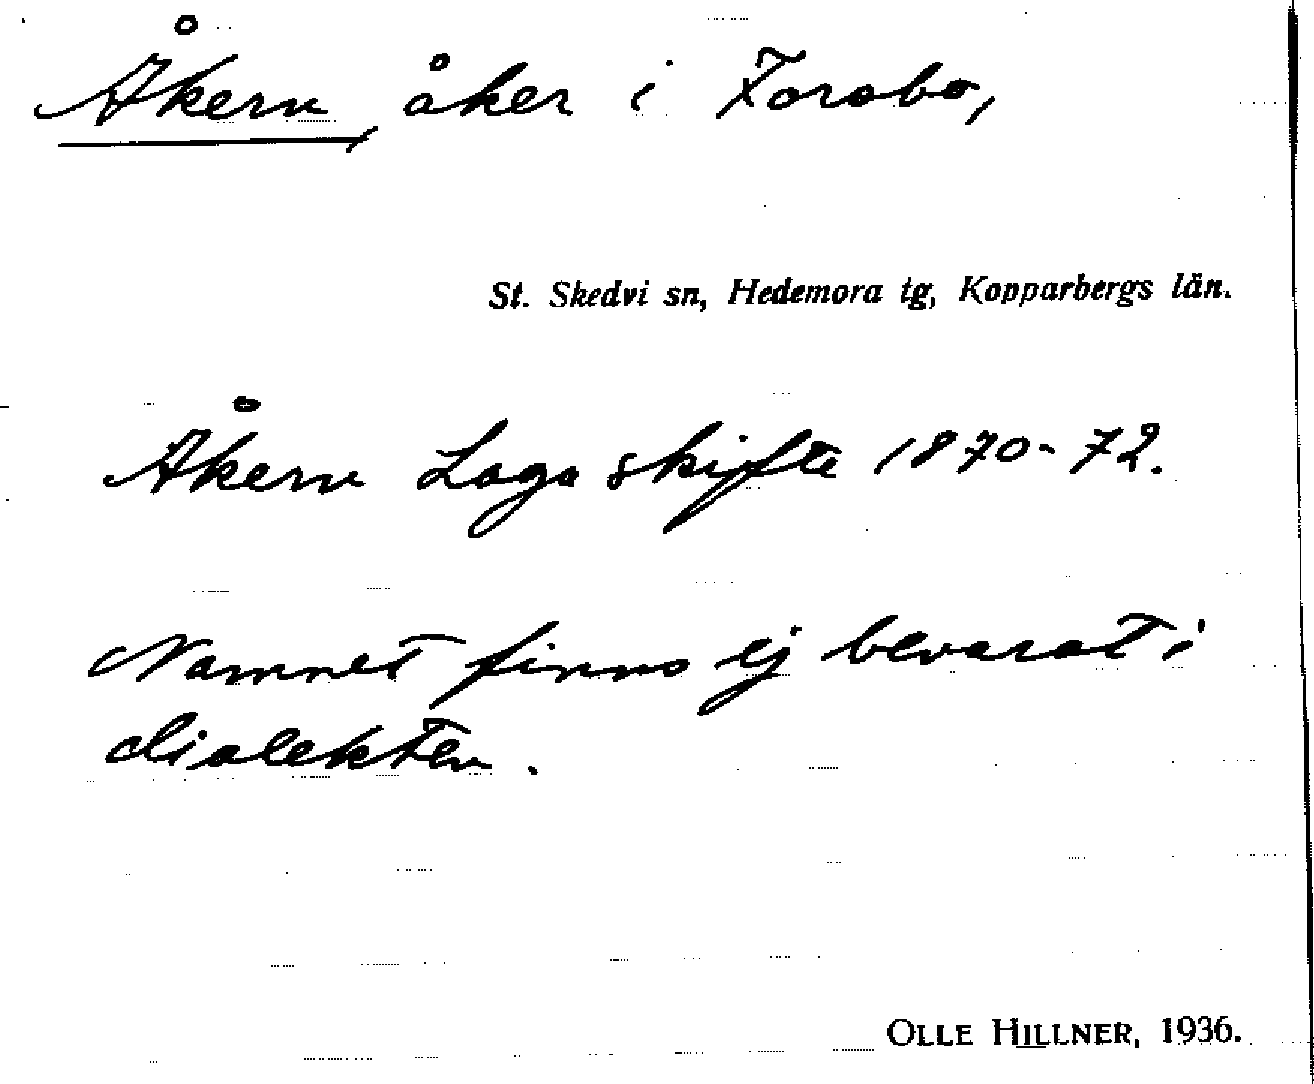 Åkern, åker i Forsbo,
St. Skedvi sn, Hedemora tg, Kopparbergs län.
Åkern Laga skifte 1870-72.
Namnet finns ej bevarat i
dialekten.
OLLE HILLNER, 1936.